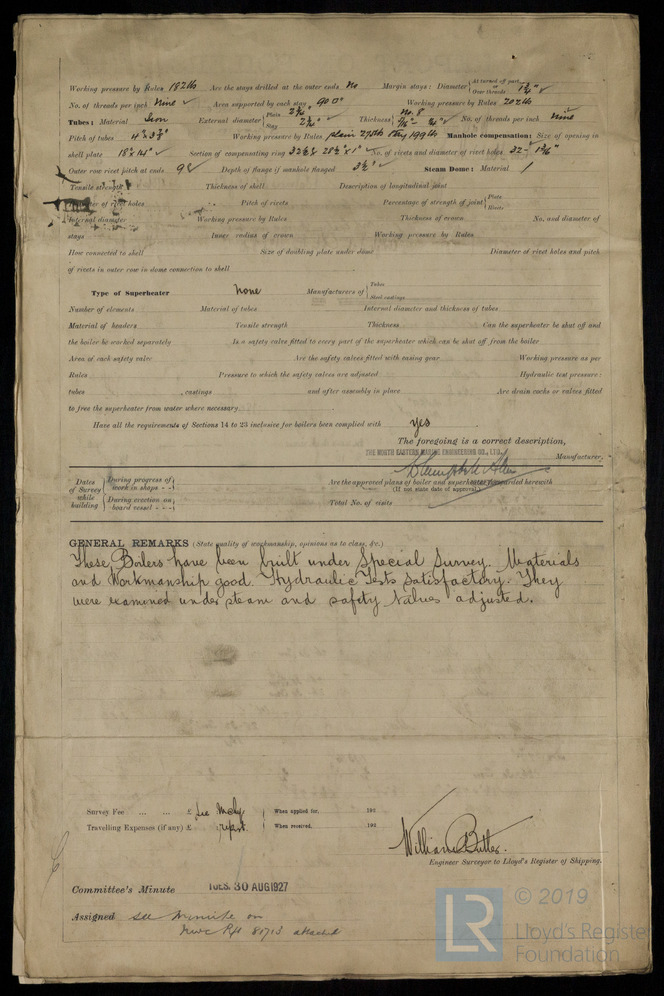 Working pressure by Rules 182 lb Are the stays drilled at the outer ends No Margin stays: Diameter At turned off part, or Over threads 1 3/4" ✓
No. of threads per inch Nine ✓ Area supported by each stay 90 □" Working pressure by Rules 202 lb
Tubes: Material Iron External diameter Plain Stay 2 1/2" ✓ Thickness No. 8 No. of threads per inch Nine ✓
Pitch of tubes Working pressure by Rules plain Manhole compensation: Size of opening in
shell plate 18" x 14" ✓ Section of compensating ring No. of rivets and diameter of rivet holes 32 -
Outer row rivet pitch at ends Depth of flange if manhole flanged 3 1/2" ✓ Steam Dome: Material /
Tensile strength Thickness of shell Description of longitudinal joint
of rivet holes Pitch of rivets Percentage of strength of joint Plate Rivets
Internal diameter Working pressure by Rules Thickness of crown No. and diameter of
stays Inner radius of crown Working pressure by Rules
How connected to shell Size of doubling plate under dome Diameter of rivet holes and pitch
of rivets in outer row in dome connection to shell
Type of Superheater None Manufacturers of Tubes Steel castings
Number of elements Material of tubes Internal diameter and thickness of tubes
Material of headers Tensile strength Thickness Can the superheater be shut off and
the boiler be worked separately Is a safety valve fitted to every part of the superheater which can be shut off from the boiler
Area of each safety valve Are the safety valves fitted with easing gear Working pressure as per
Rules Pressure to which the safety valves are adjusted Hydraulic test pressure:
tubes , castings and after assembly in place Are drain cocks or valves fitted
to free the superheater from water where necessary
Have all the requirements of Sections 14 to 23 inclusive for boilers been complied with yes
The foregoing is a correct description,
THE NORTH EASTERN MARINE ENGINEERING CO., LTD.
Manufacturer.
Dates of Survey while building During progress of work in shops - - During erection on board vessel - - -
Are the approved plans of boiler and superheater forwarded herewith
(If not state date of approval.)
Total No. of visits
GENERAL REMARKS (State quality of workmanship, opinions as to class, &c.)
These Boilers have been built under Special Survey. Materials
and Workmanship good. Hydraulic Tests Satisfactory. They
were examined under steam and safety valves adjusted.
Survey Fee ... ... £ see Mchy. When applied for, 192
Travelling Expenses (if any) £ report. When received, 192
William Butler.
Engineer Surveyor to Lloyd's Register of Shipping.
Committee's Minute TUES. 30 AUG 1927
Assigned see minute on
Nwc Rpt 81713 attached
© 2019
LR Lloyd's Register
Foundation